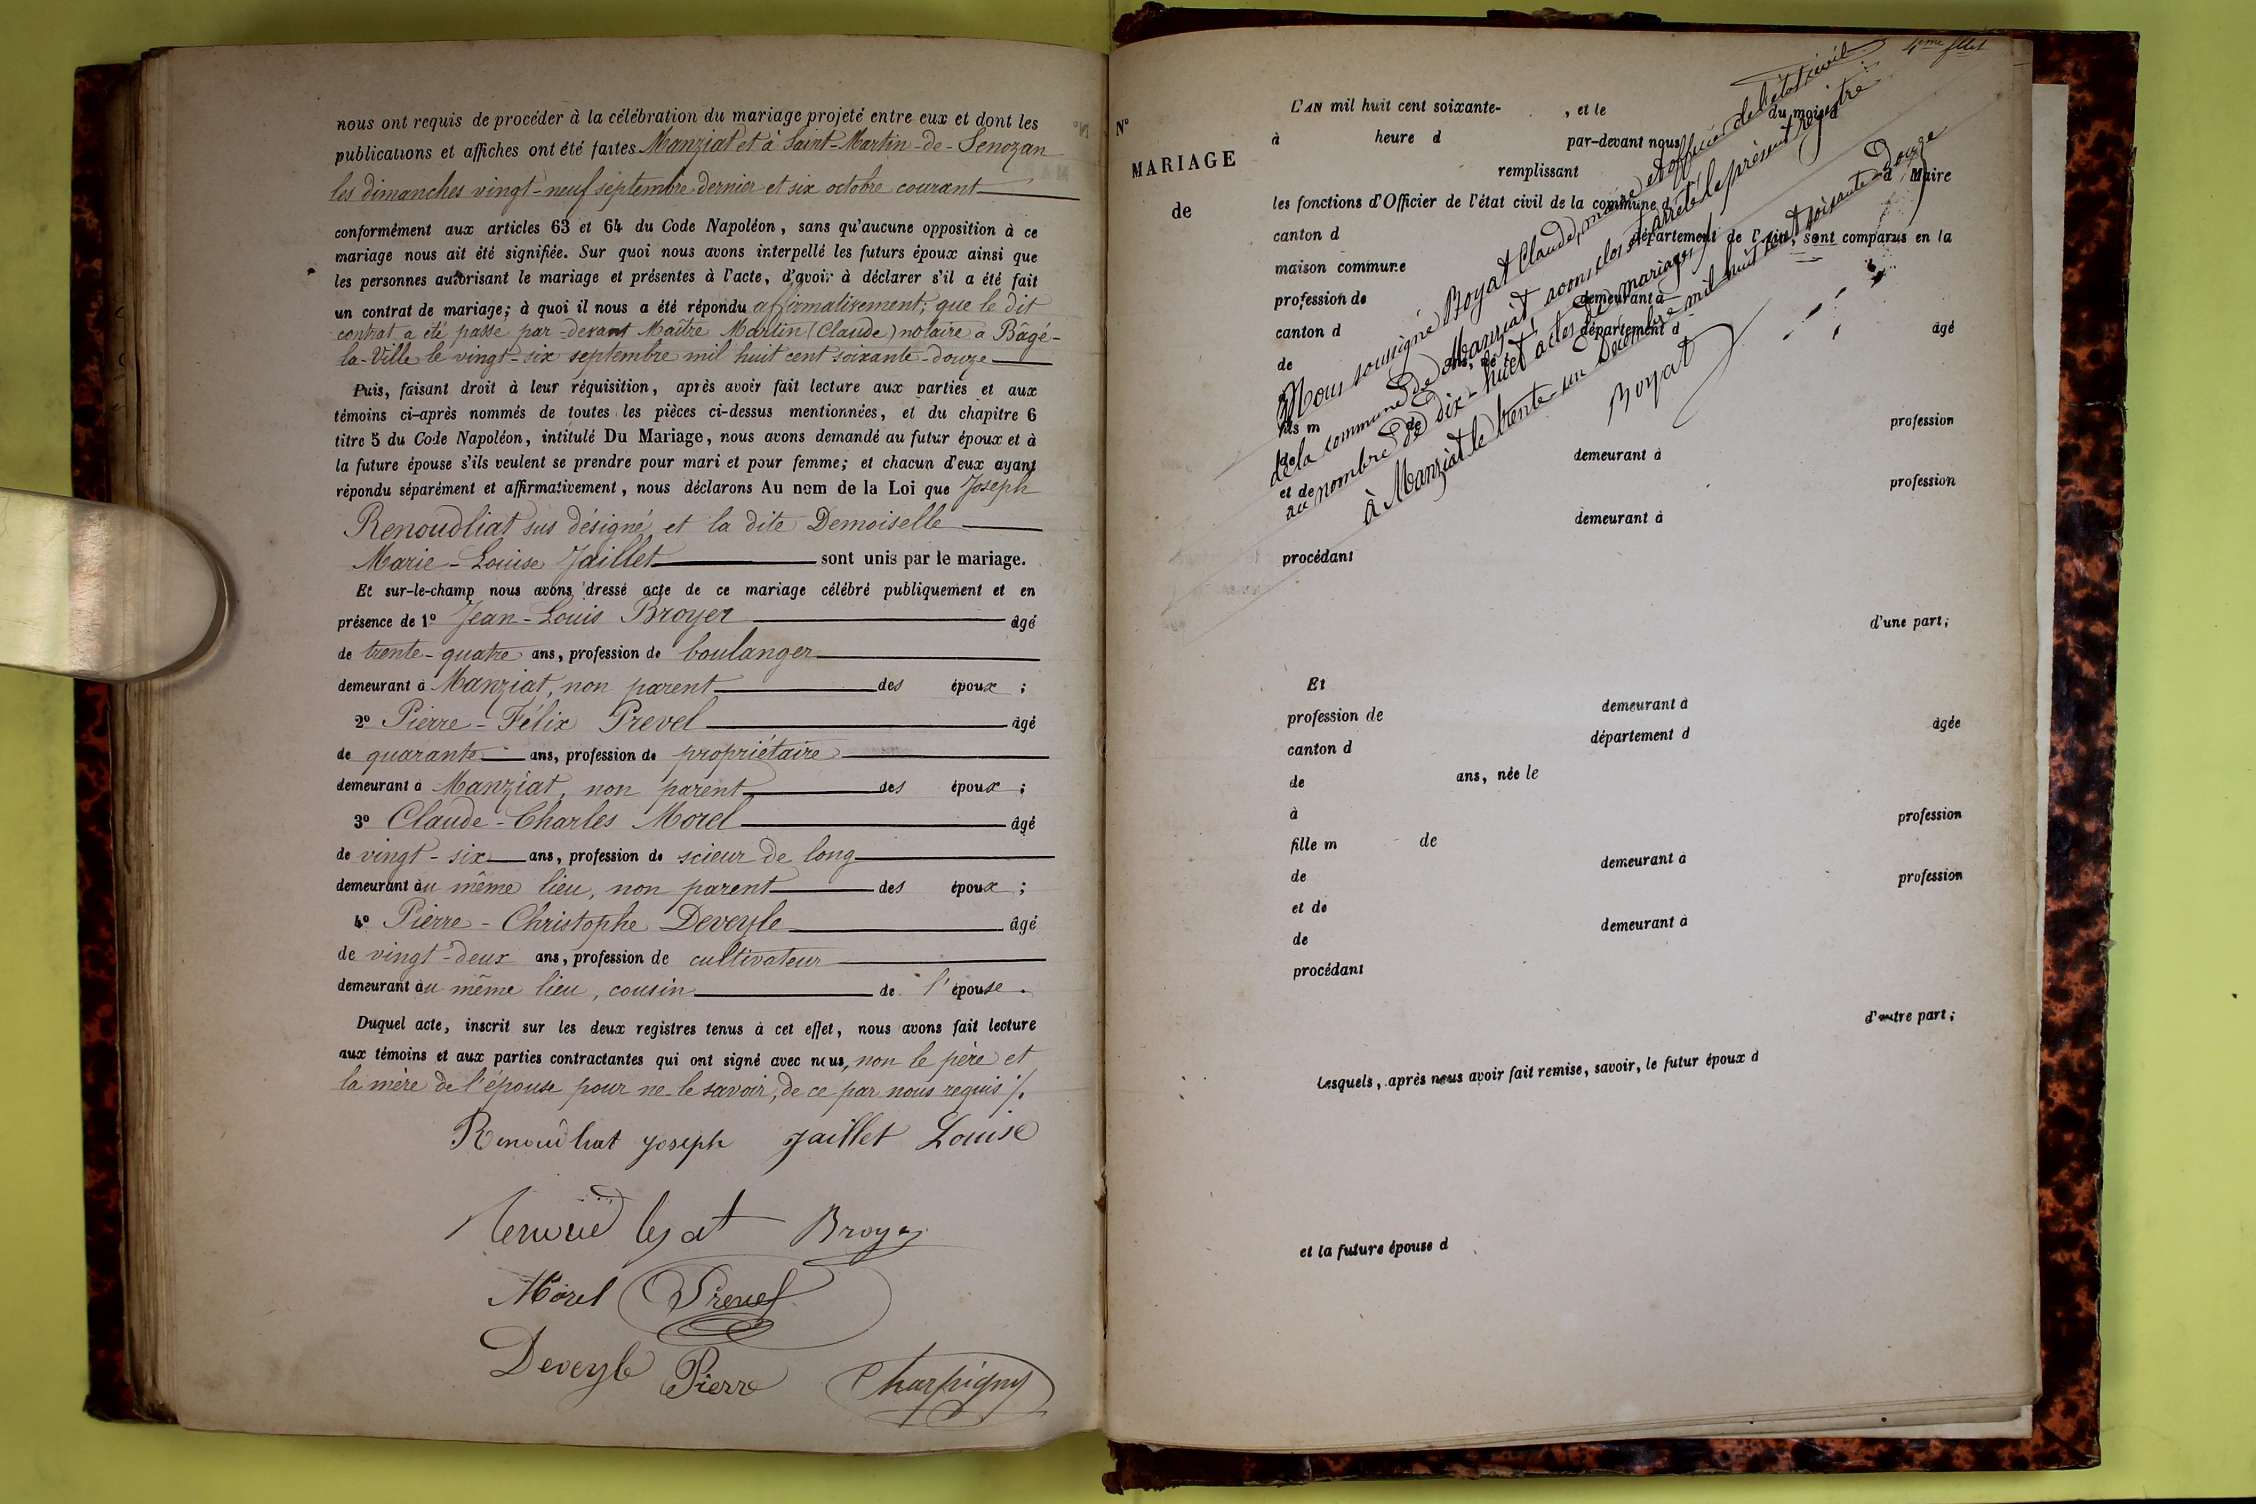 nous ont requis de procéder à la célébration du mariage projeté entre eux et dont les
publications et affiches ont été faites Manziat et à Saint-Martin-de-Senozan
les dimanches vingt-neuf septembre dernier et six octobre courant
conformément aux articles 63 et 64 du Code Napoléon, sans qu'aucune opposition à ce
mariage nous ait été signifiée. Sur quoi nous avons interpellé les futurs époux ainsi que
les personnes autorisant le mariage et présentes à l'acte, d'avoir à déclarer s'il a été fait
un contrat de mariage; à quoi il nous a été répondu affirmativement; que le dit
contrat a été passé par-devant Maître Martin (Claude) notaire à Bâgé-
la-Ville le vingt-six septembre mil huit cent soixante-douze
Puis, faisant droit à leur réquisition, après avoir fait lecture aux parties et aux
témoins ci-après nommés de toutes les pièces ci-dessus mentionnées, et du chapitre 6
titre 5 du Code Napoléon, intitulé Du Mariage, nous avons demandé au futur époux et à
la future épouse s'ils veulent se prendre pour mari et pour femme; et chacun d'eux ayant
répondu séparément et affirmativement, nous déclarons Au nom de la Loi que Joseph
Renoudliat sus désigné et la dite Demoiselle
Marie-Louise Jaillet sont unis par le mariage.
Et sur-le-champ nous avons dressé acte de ce mariage célébré publiquement et en
présence de 1° Jean-Louis Broyer âgé
de trente-quatre ans, profession de boulanger
demeurant à Manziat, non parent des époux ;
2° Pierre-Félix Prevel âgé
de quarante ans, profession de propriétaire
demeurant à Manziat, non parent des époux ;
3° Claude-Charles Morel âgé
de vingt-six ans, profession de scieur de long
demeurant au même lieu, non parent des époux ;
4° Pierre-Christophe Deveyle âgé
de vingt-deux ans, profession de cultivateur
demeurant au même lieu, cousin de l'épouse.
Duquel acte, inscrit sur les deux registres tenus à cet effet, nous avons fait lecture
aux témoins et aux parties contractantes qui ont signé avec nous, non le père et
la mère de l'épouse pour ne le savoir, de ce par nous requis ./.
Renoudliat Joseph Jaillet Louise
Broyer
Morel Prevel
Deveyle Pierre Charpigny
4ème fllet
N°
MARIAGE
de
L'AN mil huit cent soixante- , et le du mois d
à heure d par-devant nous
remplissant
les fonctions d'Officier de l'état civil de la commune d
d Maire
canton d département de l'Ain, sont comparus en la
maison commune
profession de demeurant à
canton d département d âgé
de ans, né le
fils m de profession
de demeurant à
et de profession
demeurant à
procédant
d'une part;
Nous soussigné Boyat Claude, maire et officier de l'état civil
de la commune de Manziat avons clos et arrêté le présent registre
au nombre de dix-huit actes de mariages
à Manziat le trente-un Décembre mil huit cent soixante-Douze
Boyat
Et
profession de demeurant à
canton d département d âgée
de ans, née le
à
fille m de profession
de demeurant à
et de profession
de demeurant à
procédant
d'autre part;
Lesquels, après nous avoir fait remise, savoir, le futur époux d
et la future épouse d